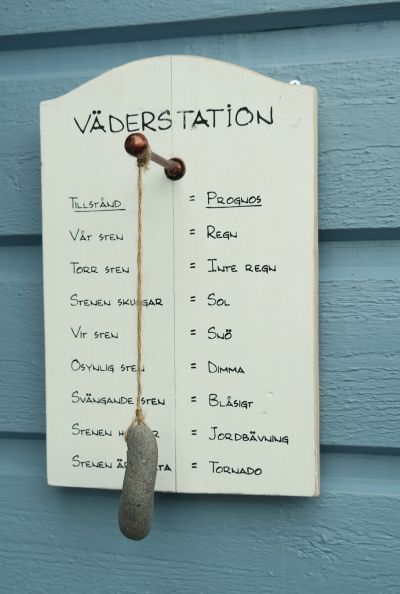 VÄDERSTATION
TILLSTÅND = PROGNOS
VÅT STEN = REGN
TORR STEN = INTE REGN
STENEN SKUGGAR = SOL
VIT STEN = SNÖ
OSYNLIG STEN = DIMMA
SVÄNGANDE STEN = BLÅSIGT
STENEN = JORDBÄVNING
STENEN ÄR = TORNADO